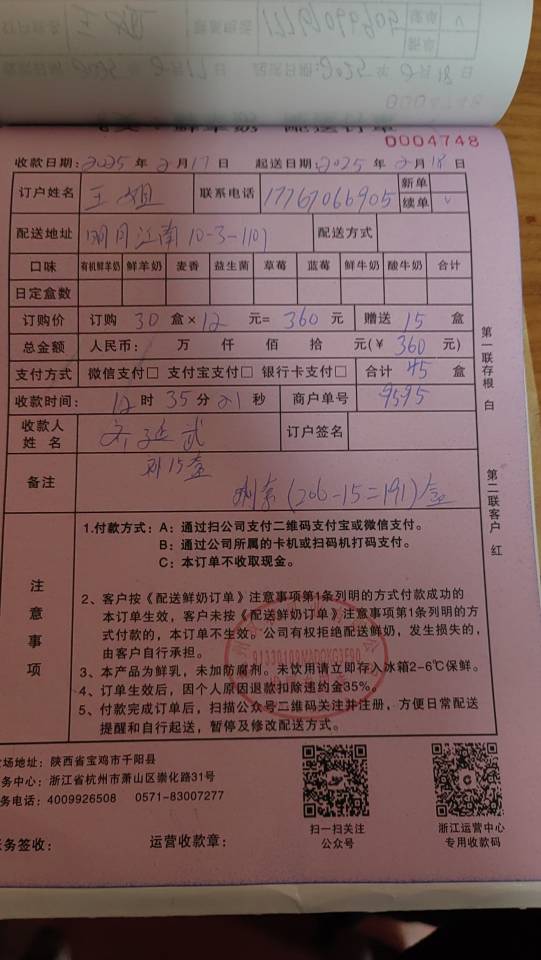 鲜羊奶 配送订单
0004748
收款日期:2025年2月17日 起送日期:2025年2月18日
订户姓名 王姐 联系电话 17767066905 新单
续单 ✓
配送地址 明月江南10-3-1101 配送方式
口味 有机鲜羊奶 鲜羊奶 麦香 益生菌 草莓 蓝莓 鲜牛奶 酸牛奶 合计
日定盒数
订购价 订购 30 盒×12 元=360 元 赠送 15 盒
总金额 人民币: 万 仟 佰 拾 元(¥ 360 元)
支付方式 微信支付□ 支付宝支付□ 银行卡支付□ 合计 45 盒
收款时间: 12时35分21秒 商户单号 9595
收款人姓名 订户签名
备注 15盒
剩余(206-15=191)盒
注意事项
1.付款方式:A:通过扫公司支付二维码支付宝或微信支付。
B:通过公司所属的卡机或扫码机打码支付。
C:本订单不收取现金。
2、客户按《配送鲜奶订单》注意事项第1条列明的方式付款成功的
本订单生效,客户未按《配送鲜奶订单》注意事项第1条列明的方
式付款的,本订单不生效。公司有权拒绝配送鲜奶,发生损失的,
由客户自行承担。
3、本产品为鲜乳,未加防腐剂。未饮用请立即存入冰箱2-6℃保鲜。
4、订单生效后,因个人原因退款扣除违约金35%。
5、付款完成订单后,扫描公众号二维码关注并注册,方便日常配送
提醒和自行起送,暂停及修改配送方式。
第一联存根 白
第二联客户 红
场地址:陕西省宝鸡市千阳县
务中心:浙江省杭州市萧山区崇化路31号
务电话:4009926508 0571-83007277
扫一扫关注
公众号
浙江运营中心
专用收款码
务签收: 运营收款章: